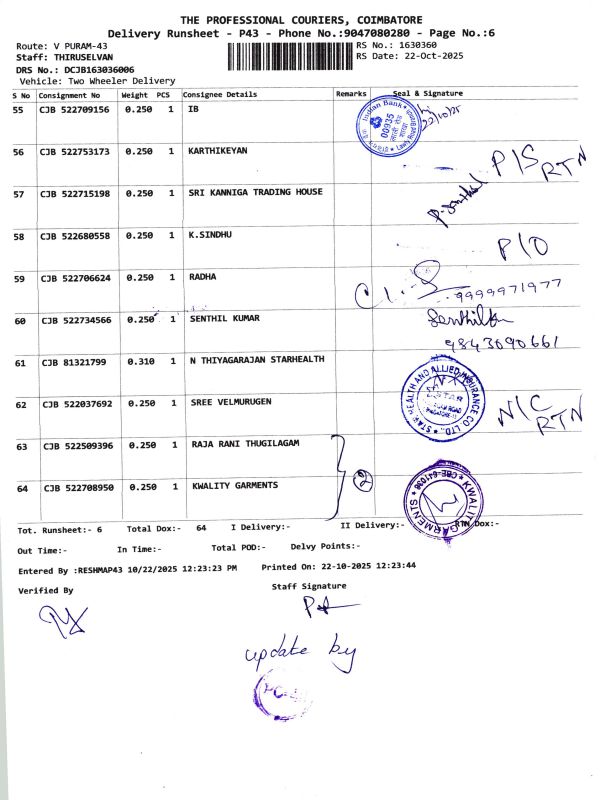 THE PROFESSIONAL COURIERS, COIMBATORE
Delivery Runsheet - P43 - Phone No.:9047080280 - Page No.:6
Route: V PURAM-43 RS No.: 1630360
Staff: THIRUSELVAN RS Date: 22-Oct-2025
DRS No.: DCJB163036006
Vehicle: Two Wheeler Delivery
S No Consignment No Weight PCS Consignee Details Remarks Seal & Signature
55 CJB 522709156 0.250 1 IB Indian Bank 00935 22/10/25
56 CJB 522753173 0.250 1 KARTHIKEYAN P/S RTN
57 CJB 522715198 0.250 1 SRI KANNIGA TRADING HOUSE
58 CJB 522680558 0.250 1 K.SINDHU P/O
59 CJB 522706624 0.250 1 RADHA 9999971977
60 CJB 522734566 0.250 1 SENTHIL KUMAR 9843090661
61 CJB 81321799 0.310 1 N THIYAGARAJAN STARHEALTH STAR HEALTH AND ALLIED INSURANCE CO LTD.,
62 CJB 522037692 0.250 1 SREE VELMURUGEN N/C RTN
63 CJB 522509396 0.250 1 RAJA RANI THUGILAGAM
64 CJB 522708950 0.250 1 KWALITY GARMENTS 2 KWALITY GARMENTS
Tot. Runsheet:- 6 Total Dox:- 64 I Delivery:- II Delivery:- RTN Dox:-
Out Time:- In Time:- Total POD:- Delvy Points:-
Entered By :RESHMAP43 10/22/2025 12:23:23 PM Printed On: 22-10-2025 12:23:44
Verified By Staff Signature
update by